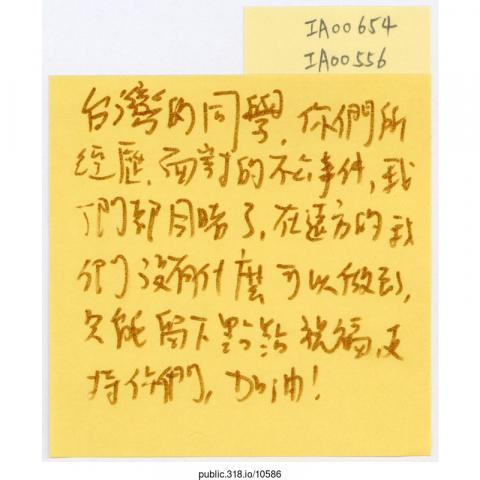 IA00654
IA00556
台灣的同學,你們所
經歷,面對的不公事件,我
們都目睹了,在遠方的我
們沒有什麼可以做到,
只能留下點點祝福,支
持你們,加油!
public.318.io/10586